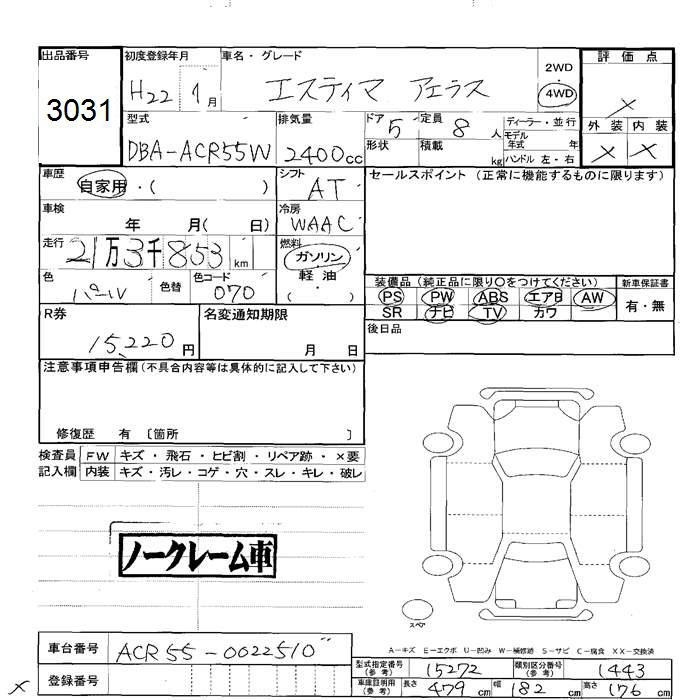 出品番号
3031
初度登録年月
H22 年 1月
車名・グレード
エスティマ アエラス
2WD
4WD
評価点
×
型式
DBA-ACR55W
排気量
2400cc
ドア 5
形状
定員 8人
積載 kg
ディーラー・並行
モデル年式 年
ハンドル 左・右
外装 内装
× ×
車歴
自家用・( )
シフト
AT
セールスポイント(正常に機能するものに限ります)
車検
年 月( 日)
冷房
WAAC
走行
21万3千853km
燃料
ガソリン
軽油
( )
色
パール
色替
色コード
070
装備品(純正品に限り○をつけてください)
新車保証書
PS PW ABS エアB AW
SR ナビ TV カワ
有・無
R券
15,220円
名変通知期限
月 日
後日品
注意事項申告欄(不具合内容等は具体的に記入して下さい)
修復歴 有 〔箇所 〕
検査員 FW キズ・飛石・ヒビ割・リペア跡・×要
記入欄 内装 キズ・汚レ・コゲ・穴・スレ・キレ・破レ
ノークレーム車
スペア
A-キズ E-エクボ U-凹み W-補修跡 S-サビ C-腐食 XX-交換済
車台番号
ACR55-0022510
型式指定番号(参考)
15272
類別区分番号(参考)
1443
登録番号
車庫証明用(参考)
長さ 479cm 幅 182cm 高さ 176cm
×